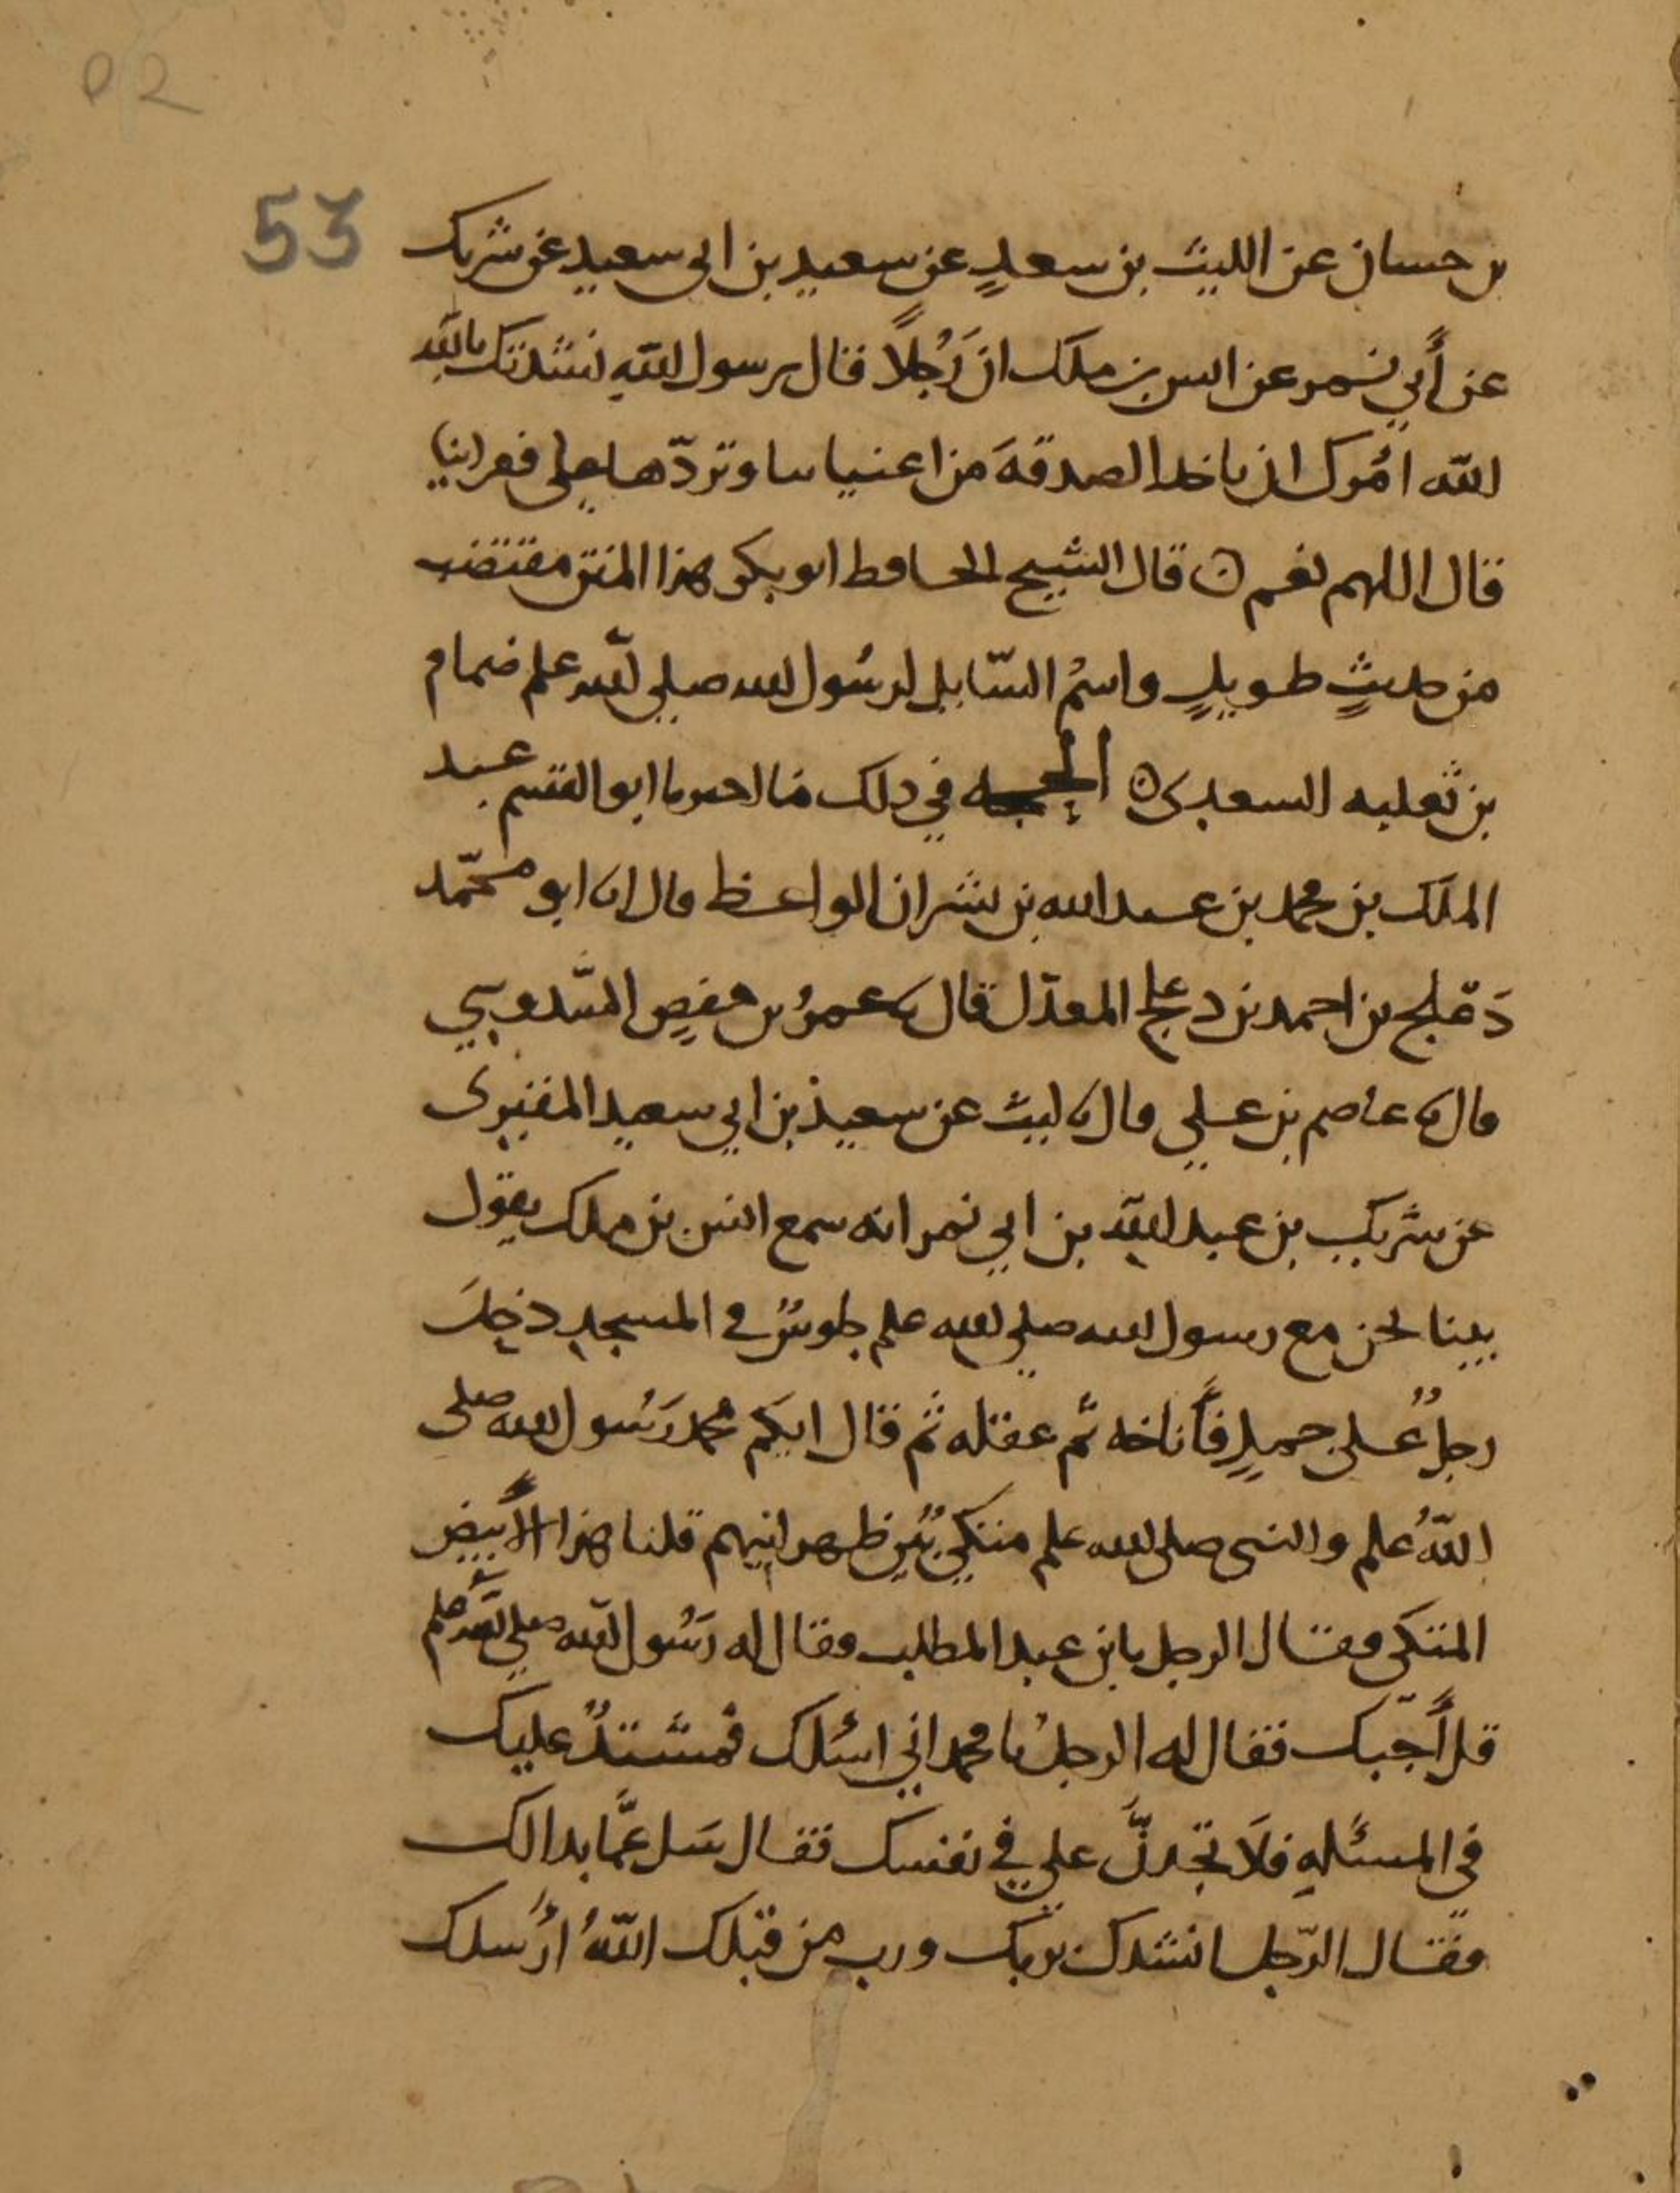 52
53
بن حسان عن الليث بن سعدٍ عن سعيد بن ابى سعيد عن شريك
عن أبي نمر عن انس بن ملك ان رَجُلاً قال يرسول اللهِ نشدتك بالله
الله امرك ان تاخذ الصدقة من اغنيائنا وتردّها على فقرائنا
قال اللهم نعم ٥ قال الشيخ الحافظ ابو بكر هذا المتن مقتضب
من حديثٍ طويلٍ واسمُ السّايل لرسُول الله صلى الله علم ضمام
بن ثعلبه السعدى ٥ الحجه في ذلك ما اخبرنا ابو القسم عبد
الملك بن محمد بن عبد الله بن بشران الواعظ قال انا ابو محمّد
دَعْلج بن احمد بن دعلج المعدّل قال نا عمرُ بن حفصٍ السّدوسي
قال نا عاصم بن علي قال نا ليث عن سعيد بن ابي سعيد المقبرى
عن شريك بن عبد الله بن ابي نمر انه سمع انس بن ملك يقول
بينا نحن مع رسول الله صلى الله علم جلوسٌ في المسجد دخل
رجلٌ على جملٍ فأناخه ثم عقله ثم قال ايكم محمد رَسُول الله صلى
اللهُ علم والنبى صلى الله علم متكي بين ظهرانيهم قلنا هذا الأبيض
المتكى فقال الرجل يابن عبد المطلب فقال له رَسُول الله صلى الله علم
قد أجبتك فقال له الرجلُ يا محمد اني اسئلك فمشتدٌ عليك
في المسئلهِ فلَا تجدنَّ علي في نفسك فقال سَل عمَّا بدالك
فقال الرّجل انشدك بربك ورب من قبلك اللهُ ارسلك